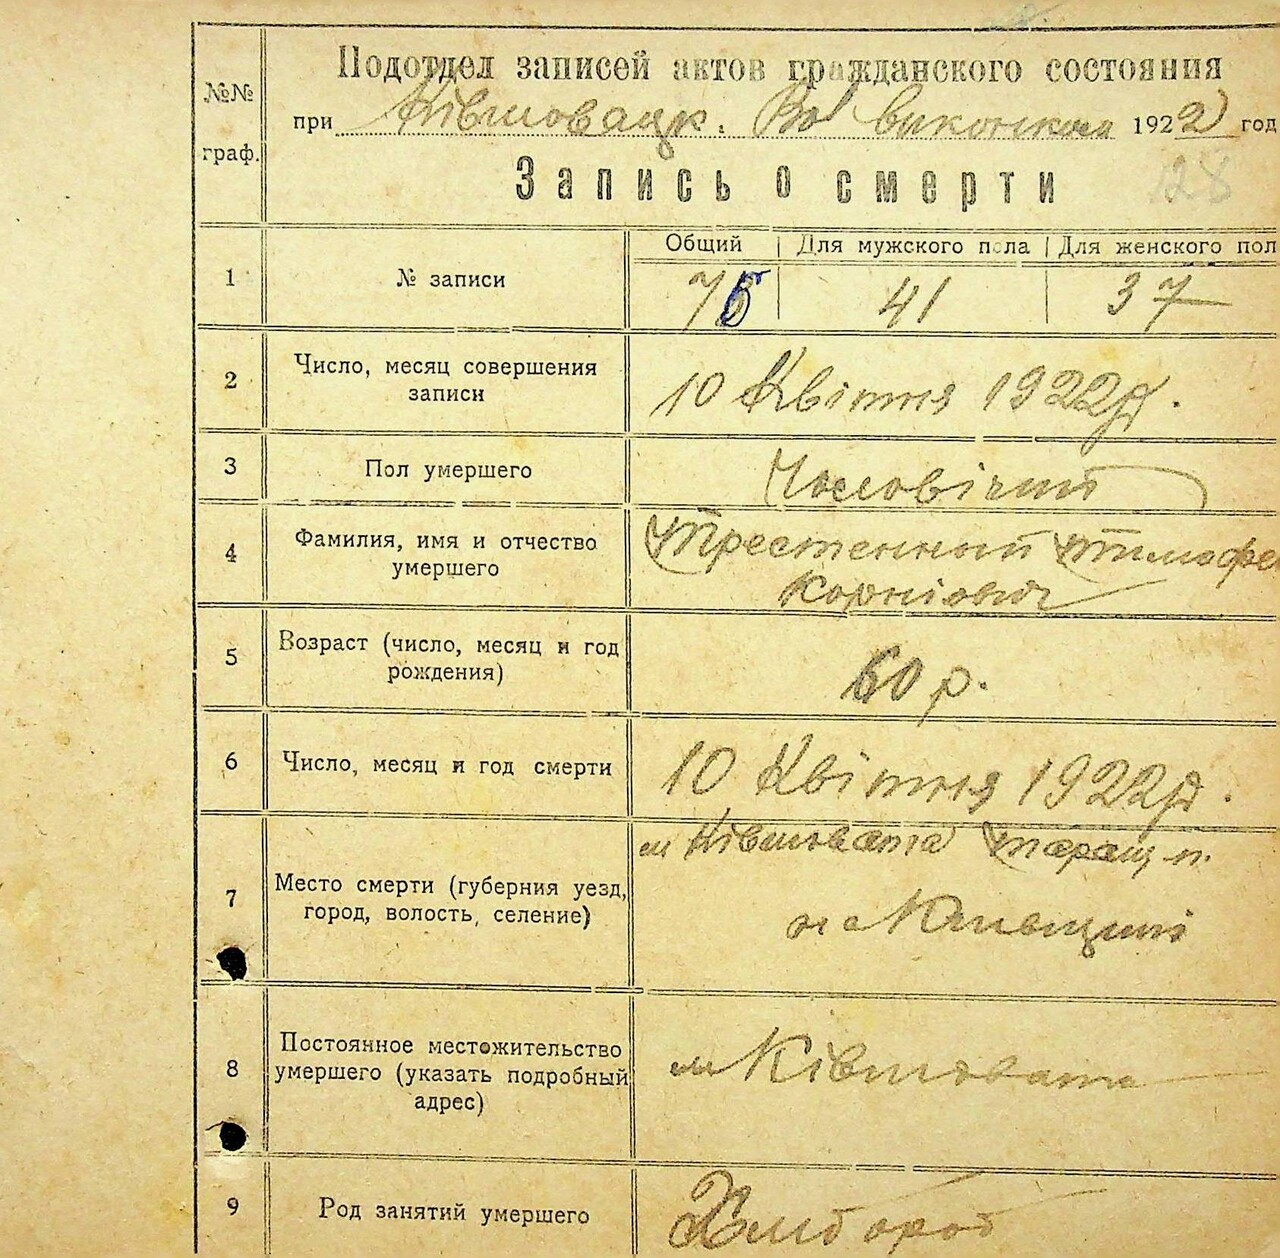 Подотдел записей актов гражданского состояния
№№
граф.
при Ківшовацк. Вол виконкомі 1922 год
Запись о смерти
128
Общий | Для мужского пола | Для женского пол
1 № записи 78 41 37
2 Число, месяц совершения
записи
10 Квітня 1922 р.
3 Пол умершего
Чоловічий
4 Фамилия, имя и отчество
умершего
Трестенный Тимофе
Корнієвич
5 Возраст (число, месяц и год
рождения)
60 р.
6 Число, месяц и год смерти
10 Квітня 1922 р.
7 Место смерти (губерния уезд,
город, волость, селение)
м Ківшовата Таращ п.
на Київщині
8 Постоянное местожительство
умершего (указать подробный
адрес)
м Ківшовата
9 Род занятий умершего
Хлібороб